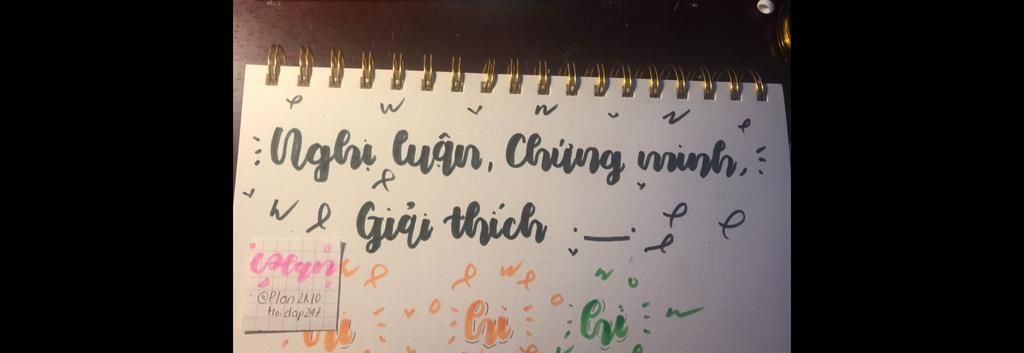 Nghị luận, Chứng minh,
Giải thích
@Plan2k10
Hoidap247
hi hi hi